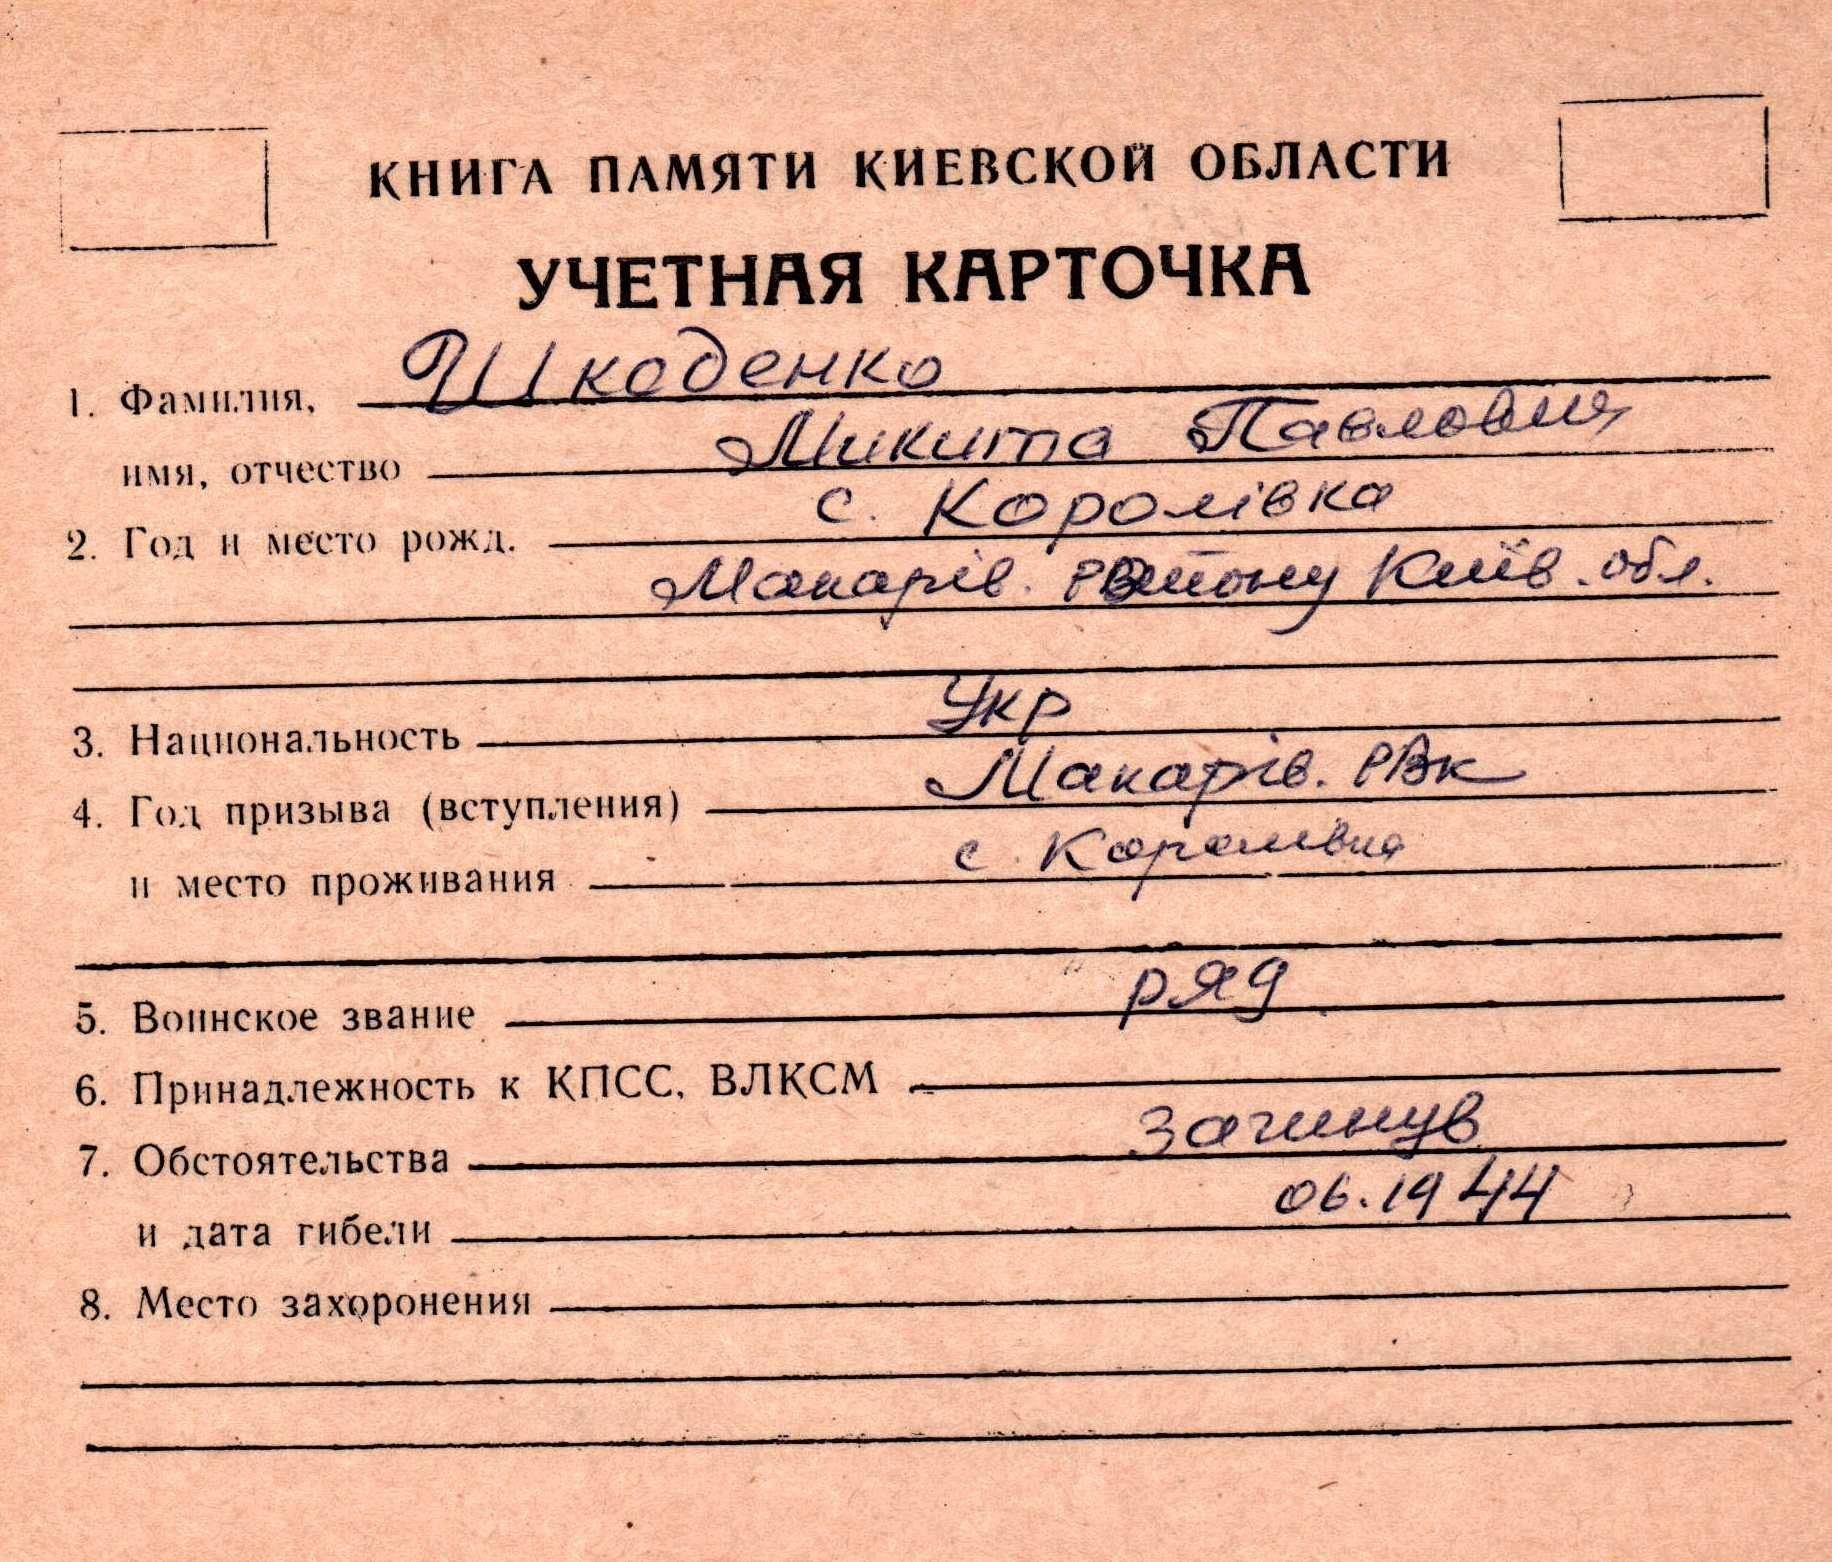 КНИГА ПАМЯТИ КИЕВСКОЙ ОБЛАСТИ
УЧЕТНАЯ КАРТОЧКА
1. Фамилия, Шкоденко
имя, отчество Микита Павлович
2. Год и место рожд. с. Королівка
Макарів. району Київ. обл.
3. Национальность Укр
4. Год призыва (вступления) Макарів. РВк
и место проживания с. Королівка
5. Воинское звание ряд
6. Принадлежность к КПСС, ВЛКСМ
7. Обстоятельства загинув
и дата гибели 06.1944
8. Место захоронения